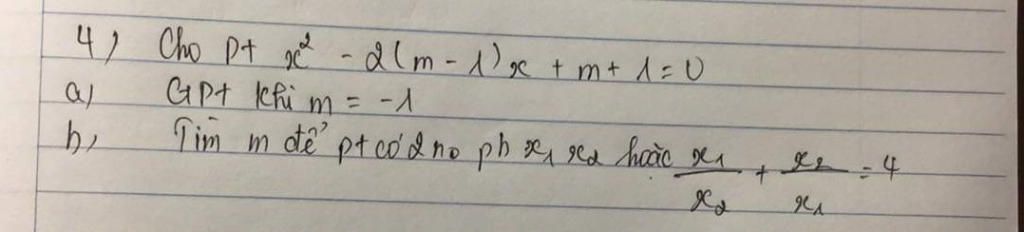 4) Cho pt x² - 2(m - 1)x + m + 1 = 0
a) GPt khi m = -1
b, Tìm m để pt có 2 no pb x₁ x₂ hoặc x₁/x₂ + x₂/x₁ = 4